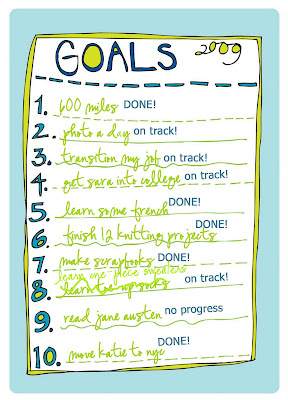 GOALS 2009
1. 600 miles DONE!
2. photo a day on track!
3. transition my job on track!
4. get sara into college on track!
5. learn some french DONE!
6. finish 12 knitting projects DONE!
7. make scrapbooks DONE!
learn one-piece sweaters
8. learn toe-up socks on track!
9. read jane austen no progress
10. move katie to nyc DONE!